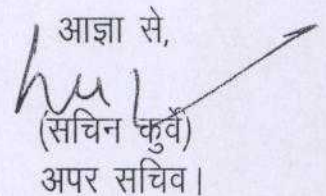 आज्ञा से,
(सचिन कुर्वे)
अपर सचिव।